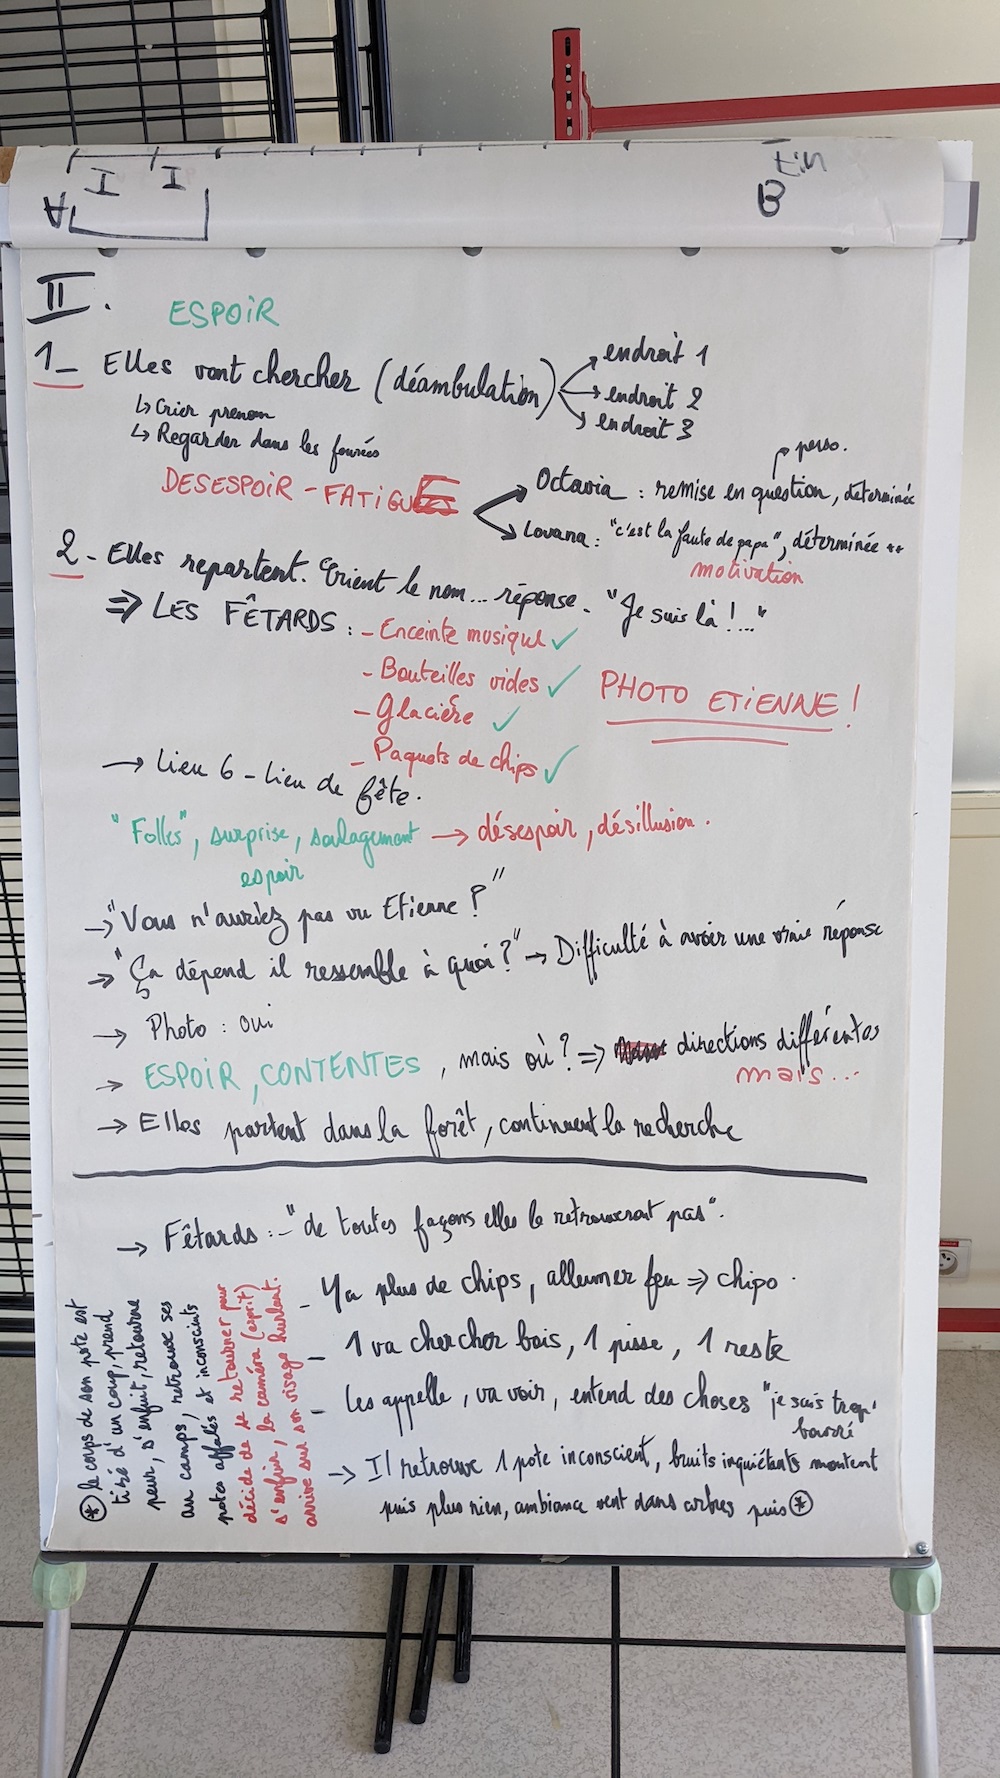 A I I
Fin
B
II.
ESPOIR
1_ Elles vont chercher (déambulation)
endroit 1
endroit 2
endroit 3
↳ Crier prenom
↳ Regarder dans les fourrés
DESESPOIR - FATIGUE
perso.
Octavia : remise en question, determinée
Lovana : "c'est la faute de papa", déterminée ++
motivation
2 - Elles repartent. Crient le nom... réponse - "Je suis là !..."
⇒ LES FÊTARDS : - Enceinte musique ✓
- Bouteilles vides ✓
- Glacière ✓
- Paquets de chips ✓
PHOTO ETIENNE !
→ Lieu 6 - Lieu de fête.
"Folles", surprise, soulagement → désespoir, désillusion.
espoir
→ "Vous n'auriez pas vu Etienne ?"
→ "Ça dépend il ressemble à quoi ?" → Difficulté à avoir une vraie réponse
→ Photo : oui
→ ESPOIR, CONTENTES, mais où ? ⇒ directions différentes
mais...
→ Elles partent dans la forêt, continuent la recherche
→ Fêtards : - "de toutes façons elles le retrouveront pas".
- Y a plus de chips, allumer feu ⇒ chipo.
- 1 va chercher bois, 1 pisse, 1 reste
- Les appelle, va voir, entend des choses "je suis trop
bourré"
→ Il retrouve 1 pote inconscient, bruits inquiétants montent
puis plus rien, ambiance vent dans arbres puis *
* le corps de son pote est
tiré d'un coup, prend
peur, s'enfuit, retourne
au camps, retrouve ses
potes affalés et inconscients
décide de se retourner pour
s'enfuir, la caméra (esprit)
arrive sur son visage hurlant.